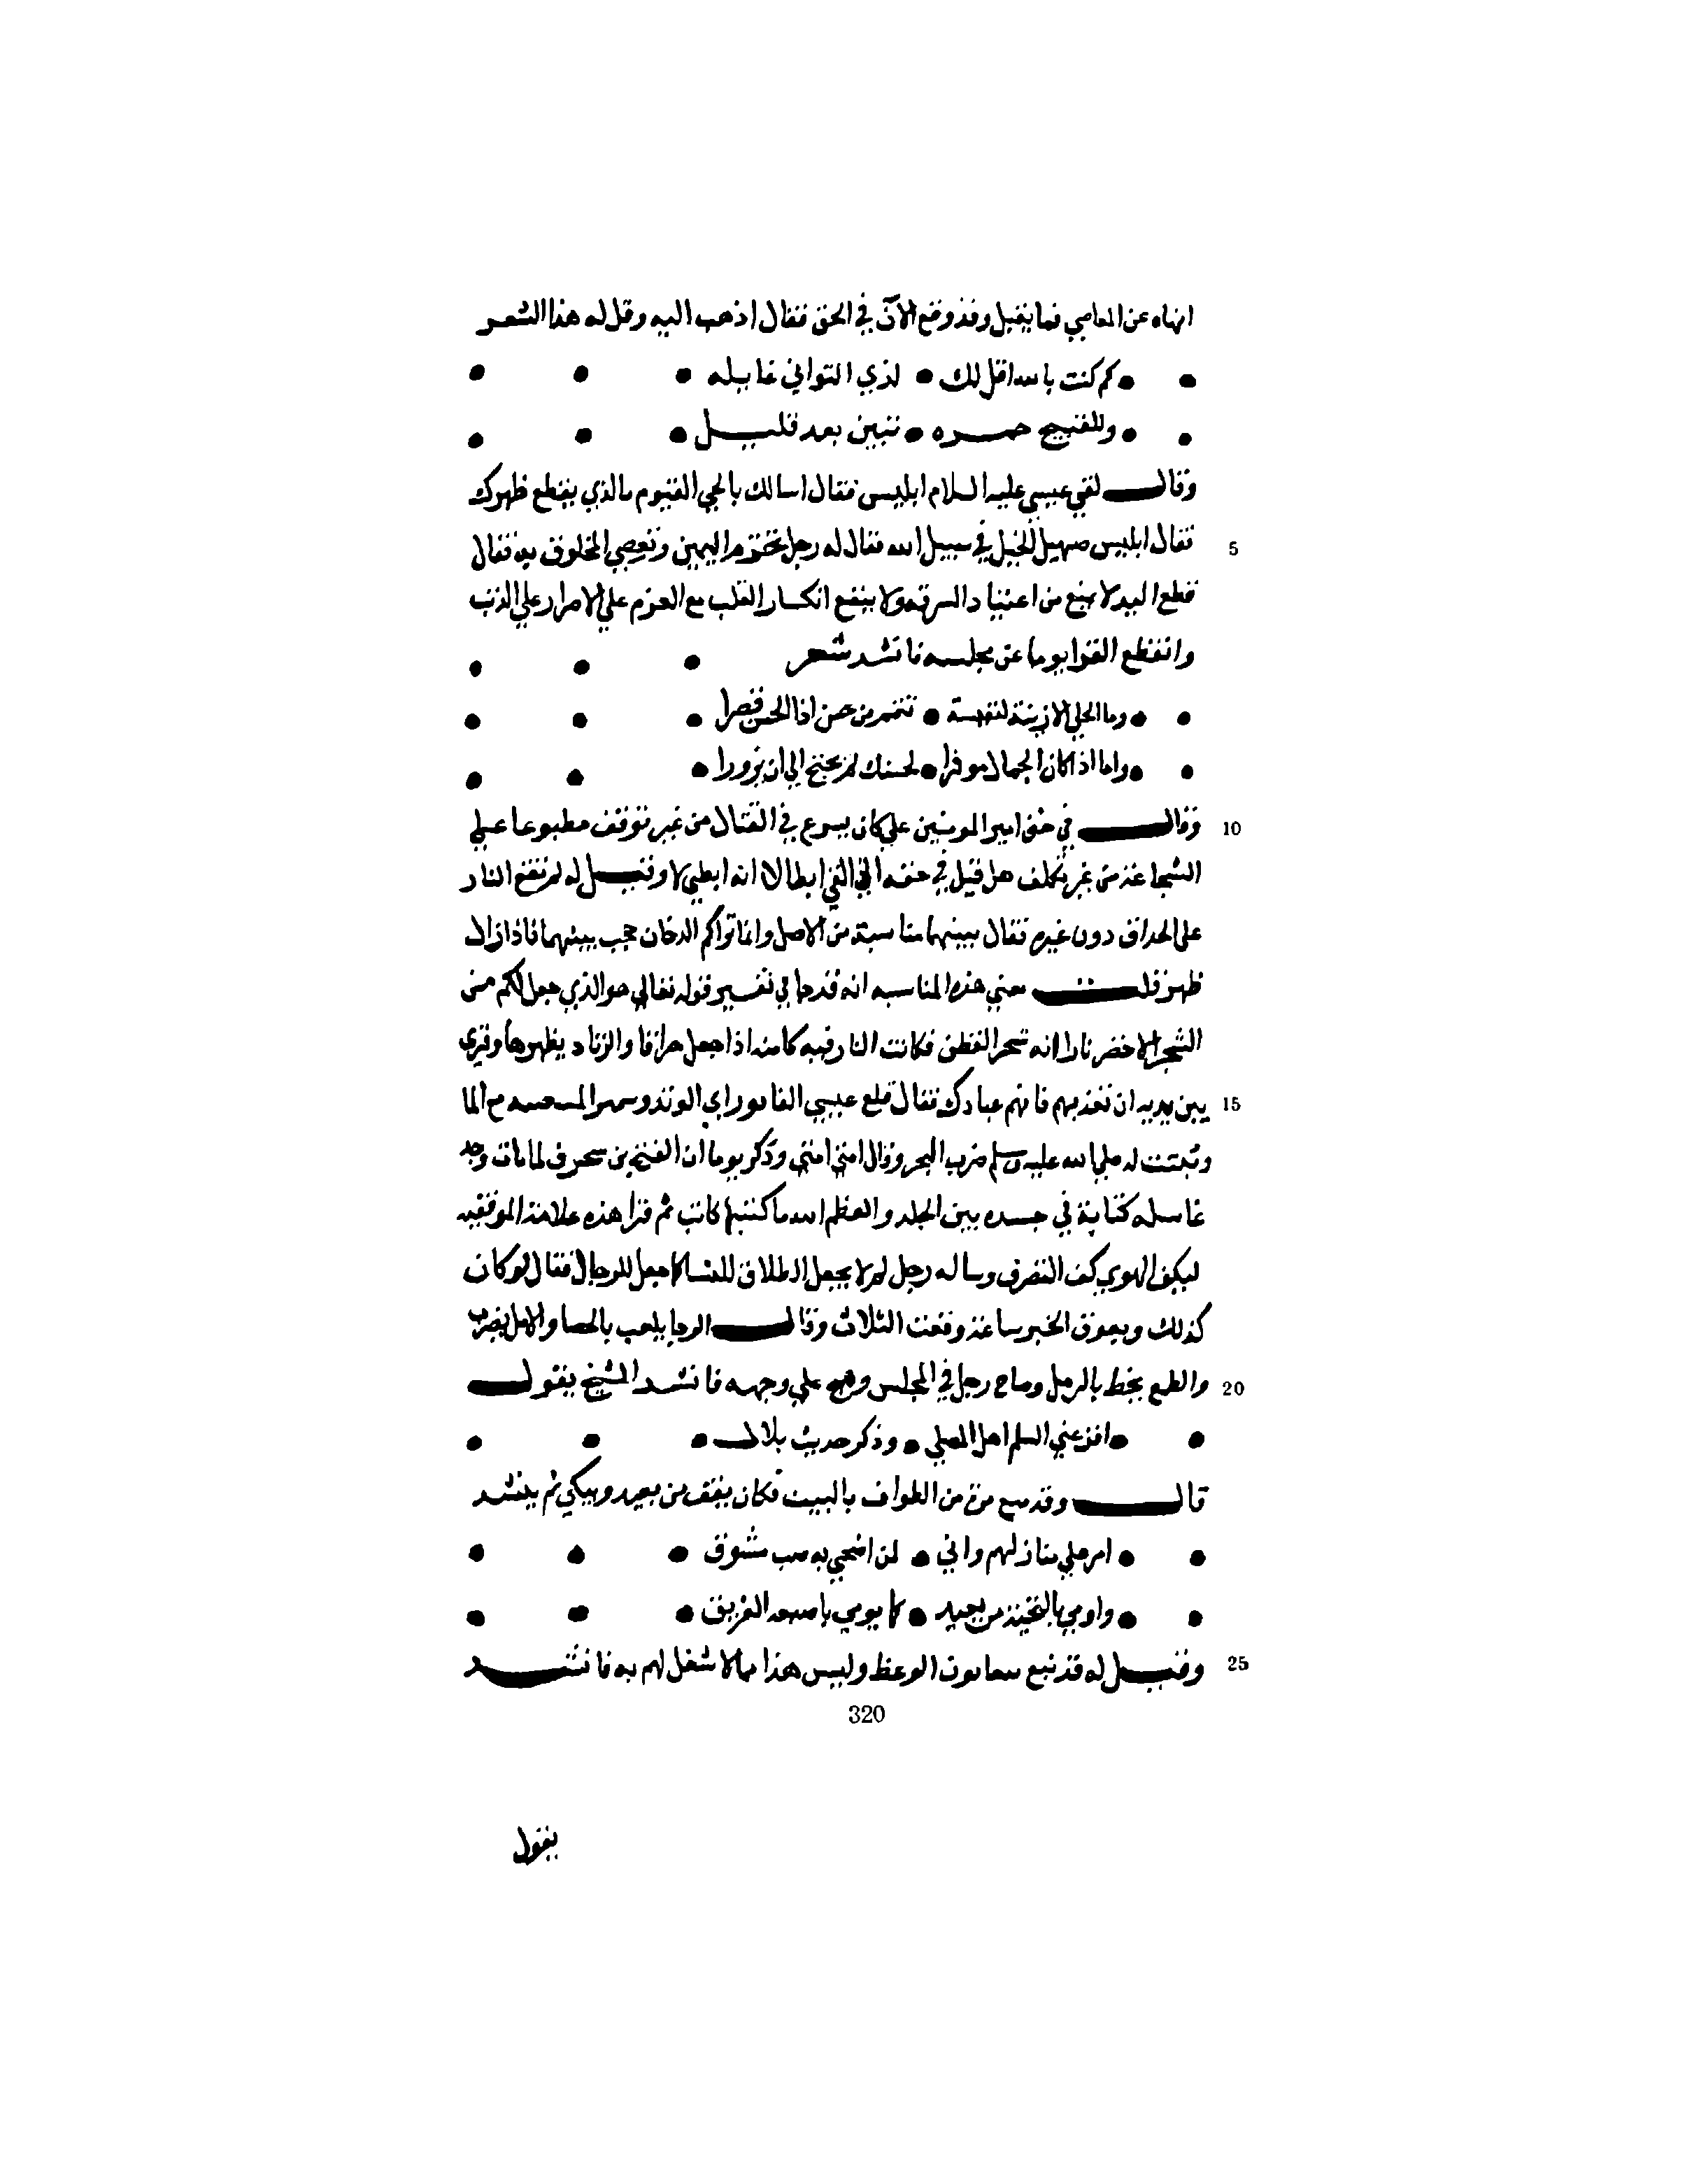 انهاه عن المعاصي فما يقبل وقد وقع الآن في الحق فقال اذهب اليه وقل له هذا الشعر
كم كنت بالله اقل لك • لذي التواني غايله
وللقبيح حسره • تبين بعد قليل
وقال لقي عيسي عليه السلام ابليس فقال اسالك بالحي القيوم ما الذي يقطع ظهرك
5 فقال ابليس صهيل الخيل في سبيل الله فقال له رجل تختم اليمين وتعصي المخلوق فقال
قطع اليد لا يمنع من اعتياد السرقه ولا ينفع انكسار القلب مع العزم علي الاصرار علي الذنب
وانقطع القرا يوما عن مجلسه فانشد شعر
وما الحلي الا زينة لنقيصة • تتمم من حسن اذا الحسن قصرا
واما اذا كان الجمال موفرا • لحسنك لم يحتج الي ان يزورا
10 وقال في حق امير المومنين علي كان يسرع في القتال من غير توقف مطبوعا علي
الشجاعة من غير تكلف هل قيل في حقه اني القي ابطالا انه ابطي لا وقيل له لم تقع النار
علي الحراق دون غيره فقال بينهما مناسبة من الاصل وانما تراكم الدخان حجب بينهما فاذا زال
ظهر قلت معني هذه المناسبه انه قد جا في تفسير قوله تعالي هو الذي جعل لكم من
الشجر الاخضر نارا انه شجر القطن فكانت النار فيه كامنه اذا جعل حراقا والزناد يظهرها وقري
15 بين يديه ان تعذبهم فانهم عبادك فقال قلع عيسي
له صلي الله عليه وسلم ضرب البحر وقال امتي امتي وذكر يوما ان الفتح بن سحرف لما مات وجد
غاسله كتابة في جسده بين الجلد والعظم الله ما كتبها كاتب ثم قرا هذه علامة الموقفيه
ليكف الهوي كف التصرف وساله رجل لم لا يجعل الطلاق للنسا كما جعل للرجال فقال لو كان
كذلك ويعوق الخبز ساعة وقعت الثلاث وقال الرجا يلعب بالحصا والامل يضرب
20 والطمع يخط بالرمل وصاح رجل في المجلس وهج علي وجهه فانشد الشيخ يقول
اهل المصلي • وذكر حديث بلال
قال وقد منع مرة من الطواف بالبيت فكان يقف من بعيد ويبكي ثم ينشد
امر علي منازلهم واني • لمن اضحي به صب مشوق
واومي بالتحية من بعيد • كما يومي باصبعه الغريق
25 وقيل له قد تبع سمامون الوعظ وليس هذا مما لا شغل لهم به فانشد
320
يقول